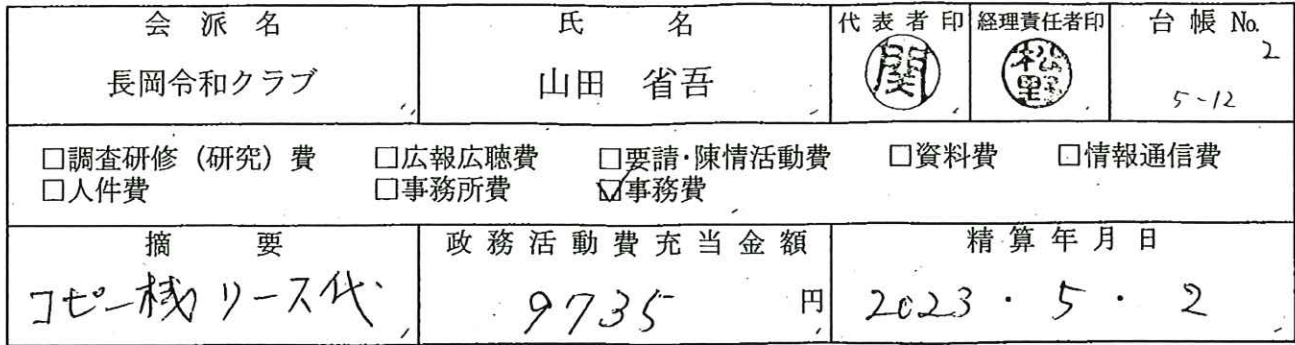 会派名 氏名 代表者印 経理責任者印 台帳No.
2
長岡令和クラブ 山田 省吾 関 松野 5-12
□調査研修（研究）費 □広報広聴費 □要請・陳情活動費 □資料費 □情報通信費
□人件費 □事務所費 ☑事務費
摘要 政務活動費充当金額 精算年月日
コピー機リース代 9735 円 2023・5・2